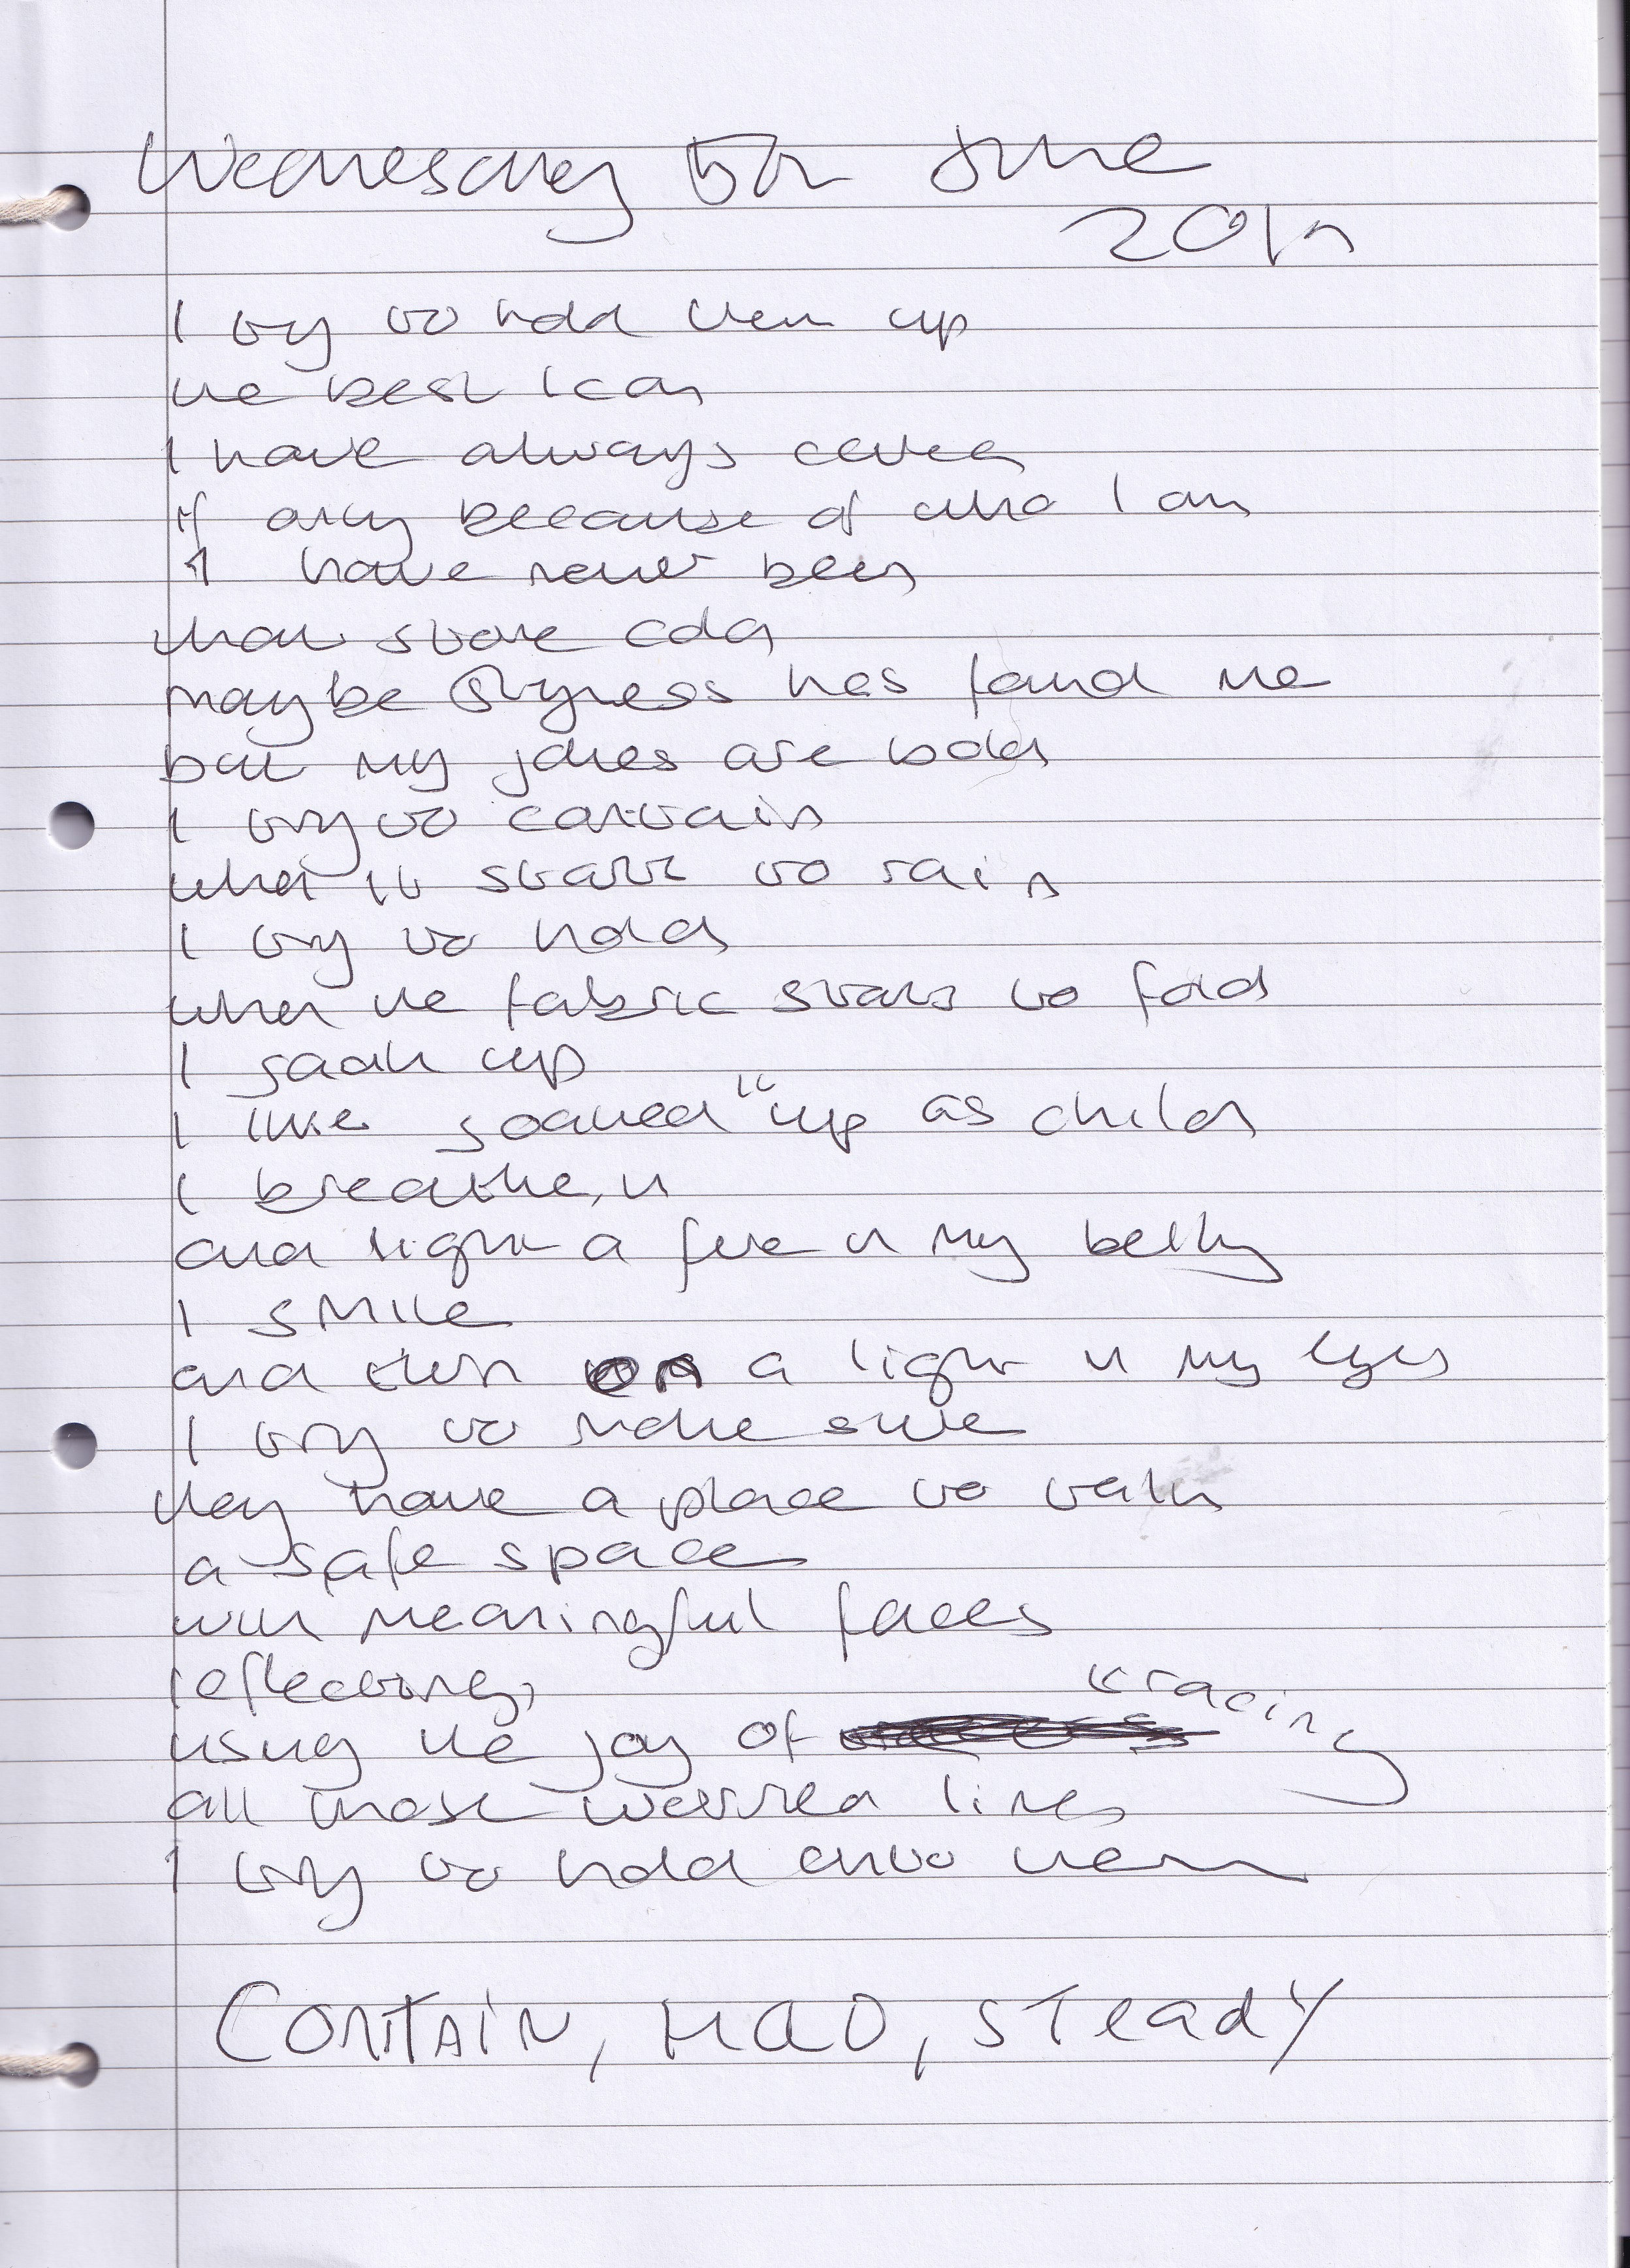 Wednesday 5th June
201
I try to hold them up
the best I can
I have always cared
if only because of who I am
I have never been
that stone cold
maybe shyness has found me
but my jokes are bold
I try to contain
when it start to rain
I try to hold
when the fabric starts to fold
I soak up
I like soaked "up as child
I breathe, in
and light a fire in my belly
I smile
and turn on a light in my eyes
I try to make sure
they have a place to talk
a safe space
with meaningful faces
reflecting,
tracing
using the joy of
all those worried lines
I try to hold onto them
CONTAIN, HOLD, STeadY